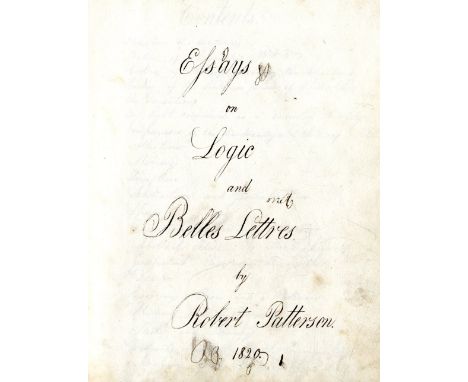 Eſsays
on
Logic
and
Belles Lettres
by
Robert Patterson.
1820.